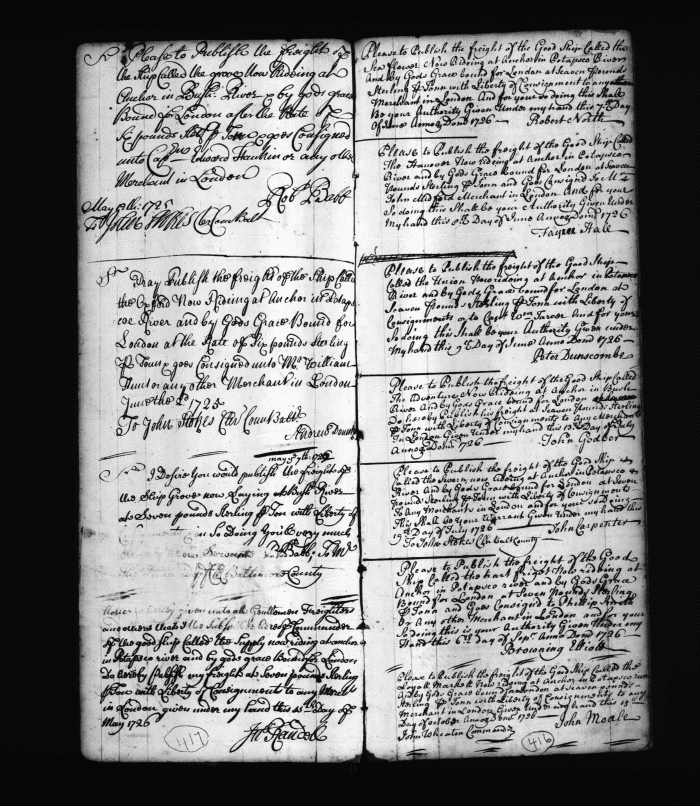 Sr Please to Publish the freight of
the Ship Called the grove Now Riding at
Anchor in Bush River & by gods grace
Bound for London after the Rate of
Six pounds Sterl p Tonn & goes Consigned
unto Capt Edward Hankin or any other
Merchant in London
Robt Babb
May 1725
To John Stokes Cler Coun Balt
Sr Pray Publish the freight of the Ship Called
the Oxford Now Riding at Anchor in Potaps
coe River and by Gods Grace Bound for
London at the Rate of Six pounds Sterling
p Tonn & goes Consigned unto Mr William
Hunt or any other Merchant in London
June the 1725
To John Stokes Clk Count Balt
Andrew
may 1726
Sr I desire You would publish the freight of
the Ship Grove now Laying at Bush River
at Seven pounds Sterling p Ton with Liberty of
in So Doing You'l every much
Servant Babb To Mr
County
given unto all Gentlemen Freighters
and others that I the
of the good Ship called the Supply now riding at anchor
in Potapsco river and by gods grace Bound for London
do hereby publish my freight at Seven pounds Sterling
p Tonn with Liberty of Consignments to any Merct
in London given under my hand this day of
May 1726
Randel
417
Please to Publish the freight of the Good Ship Called the
Sea Flower Now Riding at Anchor in Potapsco River
and by Gods Grace bound for London at Seaven Pounds
Sterling p Tonn with Liberty of Consignment to any
Merchant in London And for your so doing this Shall
be your Authority Given Under my hand this 7th Day
of June Annoq Dom 1726
Robert North
Please to Publish the freight of the Good Ship Called
The Hanover Now riding at Anchor in Potapsco
River and by Gods Grace bound for London at Seaven
Pounds Sterling p Tonn and Goes Consign'd To Mr
John Merchant in London And for your
So doing this Shall be your Authority Given Under
my hand this Day of June Annoq Dom 1726
Hall
Please to Publish the freight of the Good Ship
Called the Union Now riding at Anchor in Potapsco
River and by Gods Grace bound for London at
Seaven Pounds Sterling p Tonn with Liberty of
Consignments or to Capt Wm And for your
So doing this Shall be your Authority Given under
my hand this 9th Day of June Anno Dom 1726
Peter Dunscombe
Please to Publish the freight of the Good Ship Called
The Adventure Now Riding at Anchor in Bush
River And by Gods Grace bound for London
do hereby Publish his freight at Seaven Pounds Sterling
p Tonn with Liberty of Consignments to any Merchant
In London Given Under my hand this 13th Day of July
Annoq Dom 1726
John
Please to Publish the freight of the Good Ship
Called the Severn now Riding at Anchor in Potapsco
River And By Gods Grace bound for London at Seven
Pounds Sterling p Tonn with Liberty of Consignments
To any Merchants in London and for your So doing
this Shall be your Warrant Given Under my hand this
Day of July 1726
John Carpenter
To John Stokes Clk Balt County
Please to Publish the freight of the Good
Ship Called the hart frigat Now riding at
Anchor in Potapsco river and by Gods Grace
Bound for London at Seven Pounds Sterling
p Tonn and Goes Consigned to Phillip Smith
or Any Other Merchant in London and for your
So doing this is your Authority Given Under my
hand this 6th Day of Sepr Anno Dom 1726
Browning Elliott
Please to Publish the freight of the Good Ship Called the
Loyalt Markets Now at Anchor in Potapsco river
And by Gods Grace bound for London at Seaven pounds
Sterling p Tonn with Liberty of Consignments to any
Merchant in London Given Under my hand this 15th
Day of October Annoq Dom 1726
John Moale
John Wheaton Commander
416